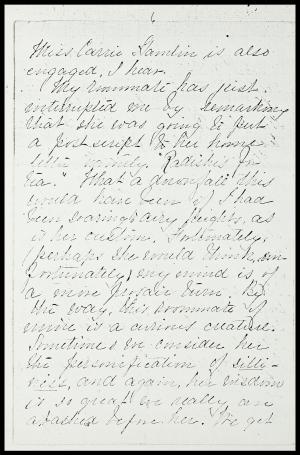 6
Miss Carrie Hamlin is also
engaged, I hear.
My roommate has just
interrupted me by remarking
that she was going to put
a post script to her home
letter, namely, "Radishes for
tea." What a downfall this
would have been if I had
been soaring airy heights, as
is her custom. Fortunately,
(perhaps she would think, un-
fortunately) my mind is of
a more prosaic turn. By
the way, this roommate of
mine is a curious creature.
Sometimes we consider her
the personification of silli-
ness, and again, her wisdom
is so great we really are
abashed before her. We get